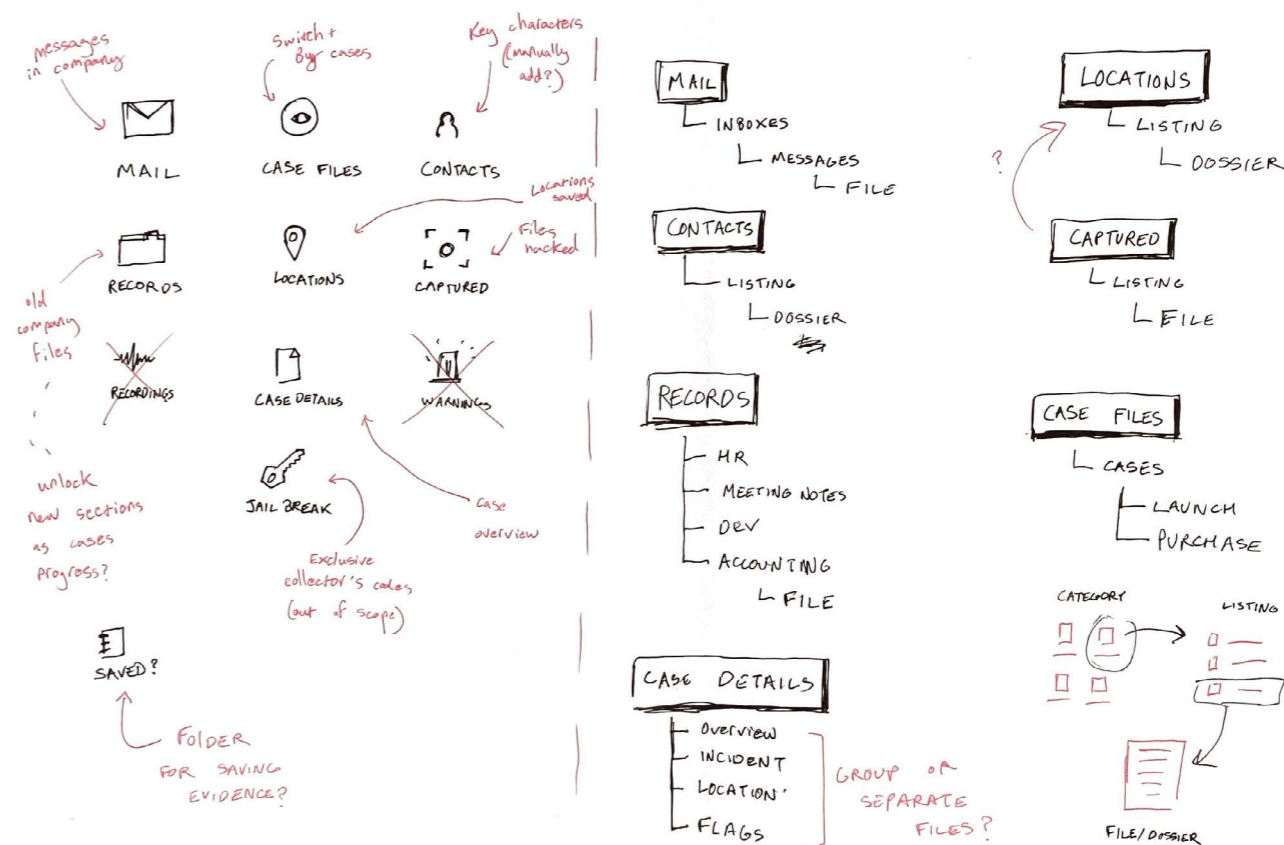 messages
in company
Switch +
Buy cases
Key characters
(manually
add?)
MAIL
CASE FILES
CONTACTS
Locations
saved
Files
hacked
RECORDS
LOCATIONS
CAPTURED
old
company
files
RECORDINGS
CASE DETAILS
WARNINGS
unlock
new sections
as cases
progress?
JAIL BREAK
case
overview
Exclusive
collector's codes
(out of scope)
SAVED?
FOLDER
FOR SAVING
EVIDENCE?
MAIL
INBOXES
MESSAGES
FILE
CONTACTS
LISTING
DOSSIER
RECORDS
HR
MEETING NOTES
DEV
ACCOUNTING
FILE
CASE DETAILS
Overview
INCIDENT
LOCATION
FLAGS
GROUP OR
SEPARATE
FILES?
LOCATIONS
LISTING
DOSSIER
?
CAPTURED
LISTING
FILE
CASE FILES
CASES
LAUNCH
PURCHASE
CATEGORY
LISTING
FILE/DOSSIER